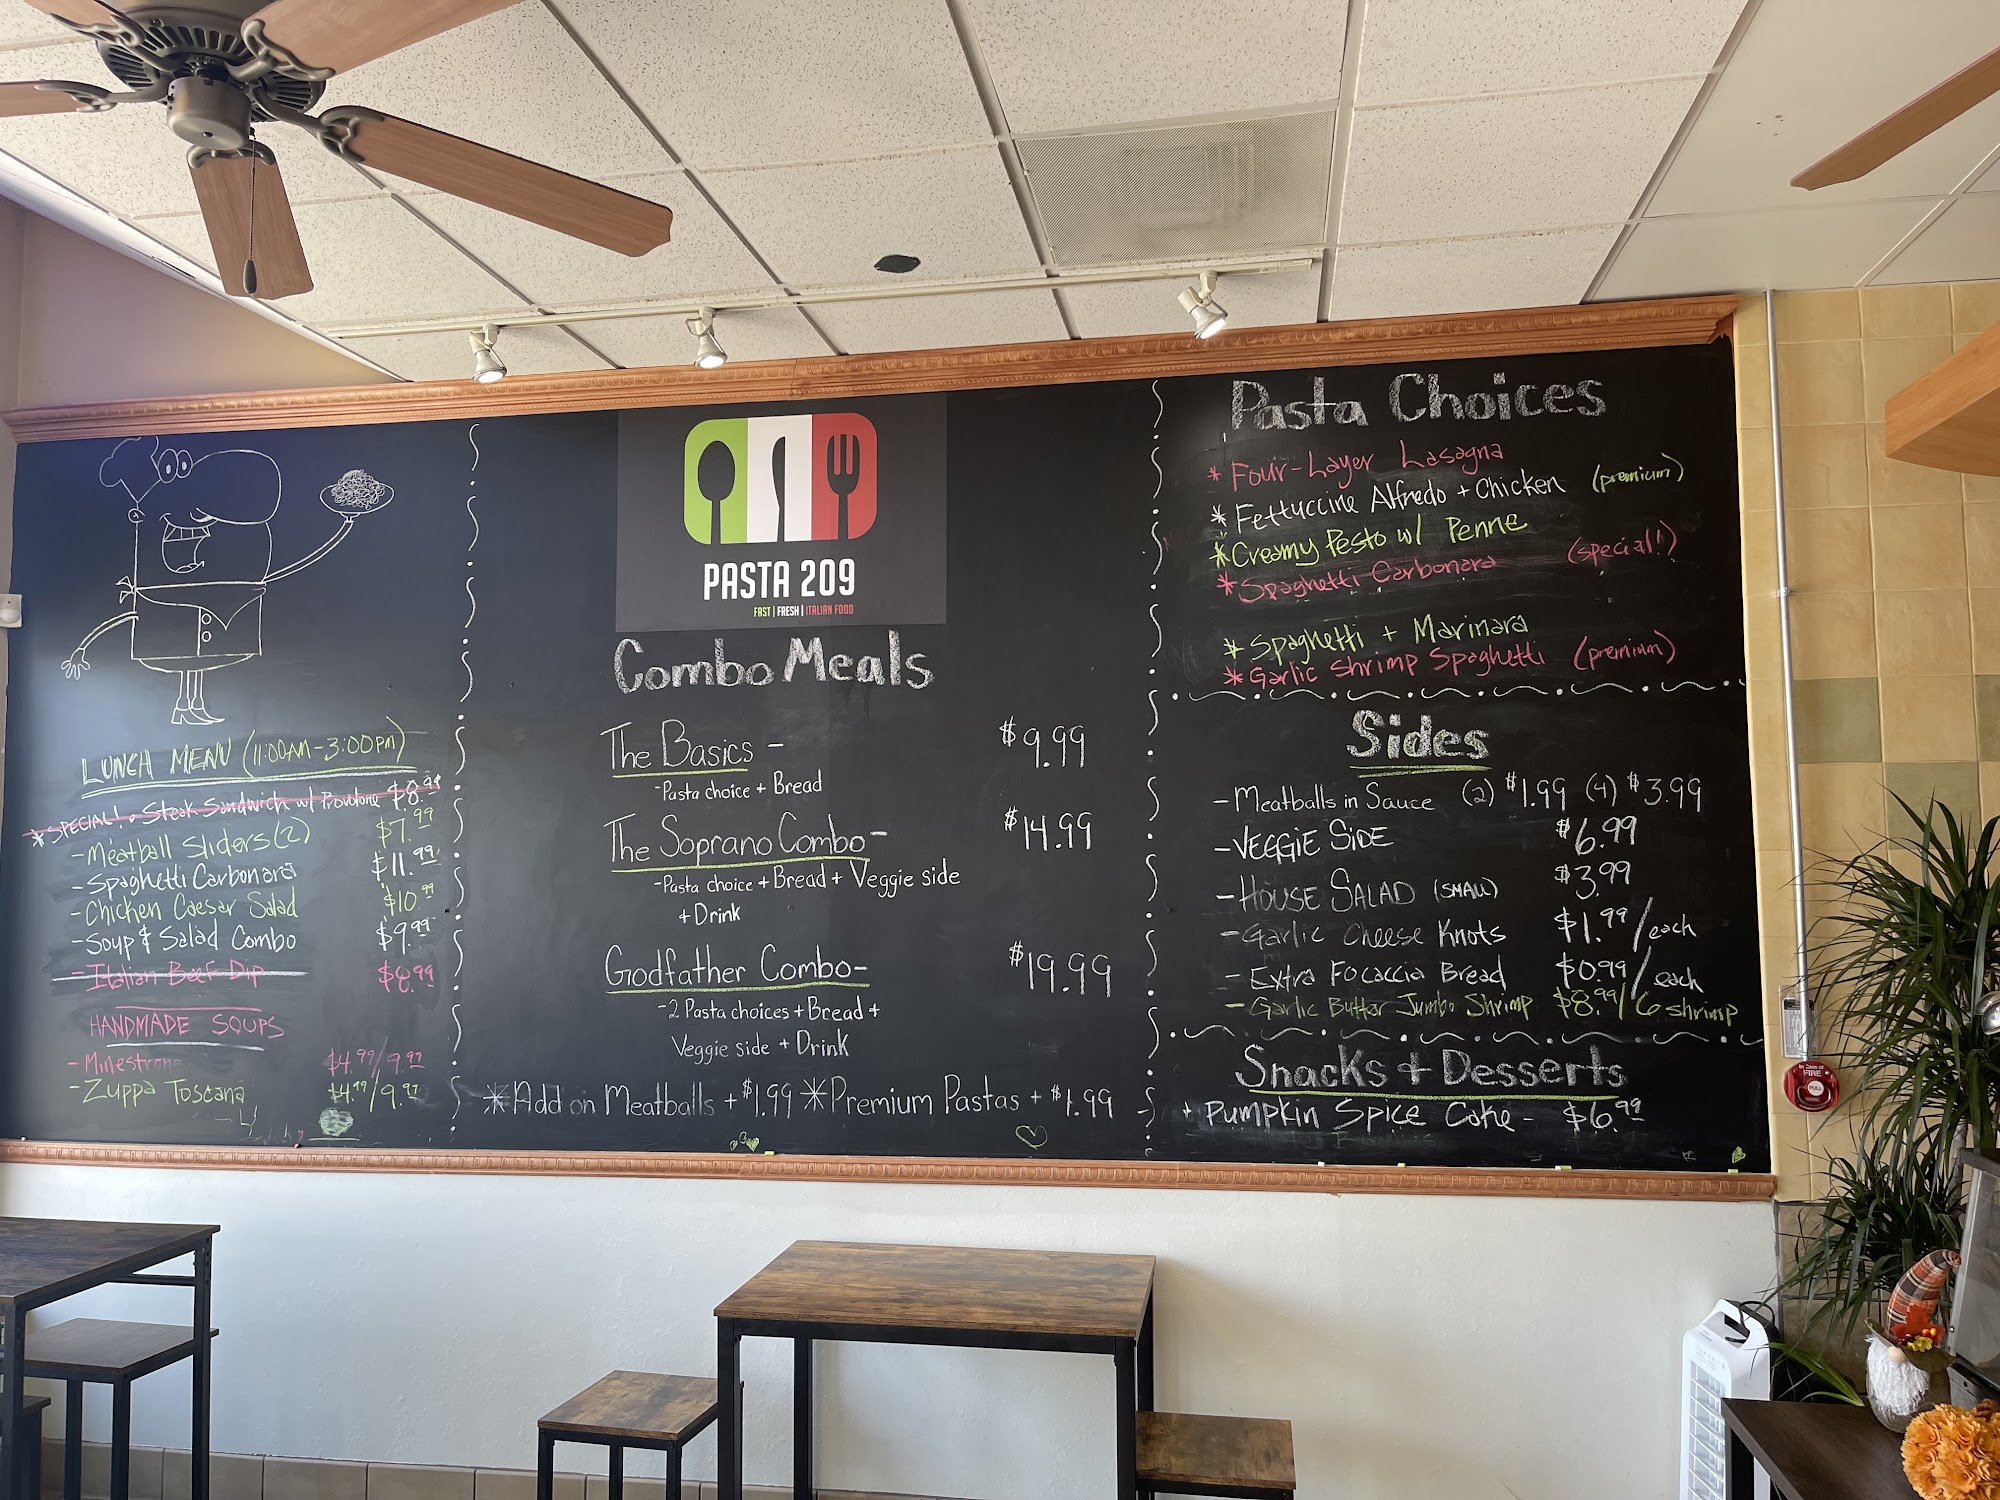 LUNCH MENU (11:00AM-3:00PM)
*SPECIAL! • Steak Sandwich w/ Provolone $8.99
-Meatball Sliders (2) $7.99
-Spaghetti Carbonara $11.99
-Chicken Caesar Salad $10.99
-Soup & Salad Combo $9.99
-Italian Beef Dip $8.99
HANDMADE SOUPS
-Minestrone $4.99/9.99
-Zuppa Toscana $4.99/9.99
PASTA 209
FAST | FRESH | ITALIAN FOOD
Combo Meals
The Basics - $9.99
-Pasta choice + Bread
The Soprano Combo- $14.99
-Pasta choice + Bread + Veggie side
+ Drink
Godfather Combo- $19.99
-2 Pasta choices + Bread +
Veggie side + Drink
*Add on Meatballs + $1.99 *Premium Pastas + $1.99
Pasta Choices
* Four-Layer Lasagna
* Fettuccine Alfredo + Chicken (premium)
* Creamy Pesto w/ Penne
* Spaghetti Carbonara (special!)
* Spaghetti + Marinara
* Garlic Shrimp Spaghetti (premium)
Sides
-Meatballs in Sauce (2) $1.99 (4) $3.99
-VEGGIE SIDE $6.99
-HOUSE SALAD (SMALL) $3.99
-Garlic Cheese Knots $1.99/each
-Extra Focaccia Bread $0.99/each
-Garlic Butter Jumbo Shrimp $8.99/6 shrimp
Snacks + Desserts
+ Pumpkin Spice Cake - $6.99
FIRE
PULL